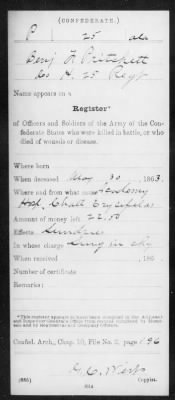 (CONFEDERATE.)
P 25 Ala
Benj F Pritchett
Co H, 25 Regt
Name appears on a
Register*
of Officers and Soldiers of the Army of the Con-
federate States who were killed in battle, or who
died of wounds or disease.
Where born
When deceased May 30, 1863.
Where and from what cause Academy
Hosp. Chatt Erysipelas
Amount of money left 22.50
Effects Sundries
In whose charge
When received , 186 .
Number of certificate
Remarks:
*This register appears to have been compiled in the Adjutant
and Inspector General's Office from records furnished by Hospi-
tals and by Regimental and Company Officers.
Confed. Arch., Chap. 10, File No. 2, page 296
Copyist.